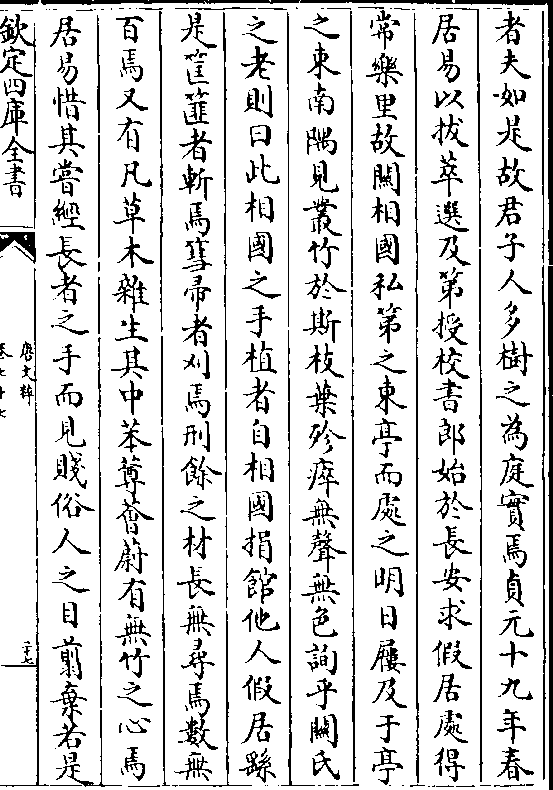 者夫如是故君子人多樹之為庭實焉貞元十九年春
居易以拔萃選及第授校書郎始於長安求假居處得
常樂里故關相國私第之東亭而處之明日屨及于亭
之東南隅見叢竹於斯枝葉殄瘁無聲無色詢乎關氏
之老則曰此相國之手植者自相國捐館他人假居繇
是筐篚者斬焉篲帚者刈焉刑餘之材長無尋焉數無
百焉又有凡草木雜生其中苯䔿薈蔚有無竹之心焉
居易惜其嘗經長者之手而見賤俗人之目翦棄若是
欽定四庫全書
唐文粹
卷七十七
二十七